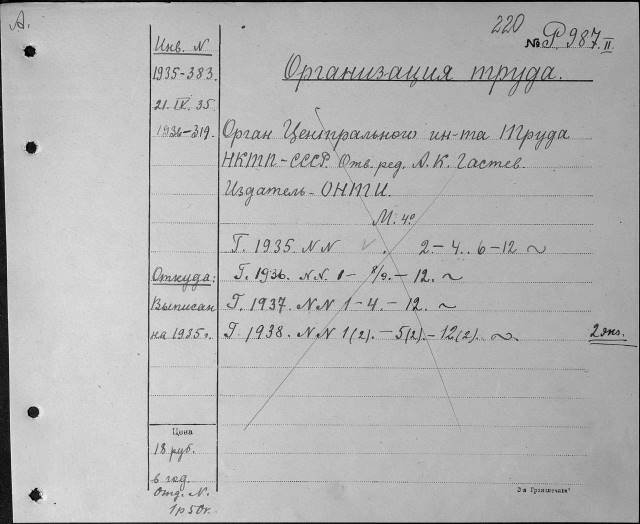 А.
220
№ Р 987. II.
Инв. N
1935-383.
21. IX. 35.
1936-319.
Организация труда.
Орган Центрального ин-та Труда
НКТП-СССР. Отв. ред. А. К. Гастев.
Издатель - ОНТИ.
М. 4º
Г. 1935. N N 2-4.. 6-12 ~
Откуда: Г. 1936. N N. 1- 8/9. - 12. ~
Выписан Г. 1937. N N 1-4. - 12. ~
на 1935г. Г. 1938. N N 1(2). - 5(2). - 12(2). ~ 2 экз.
Цена
18 руб.
в год.
Отд. N.
1р50к.